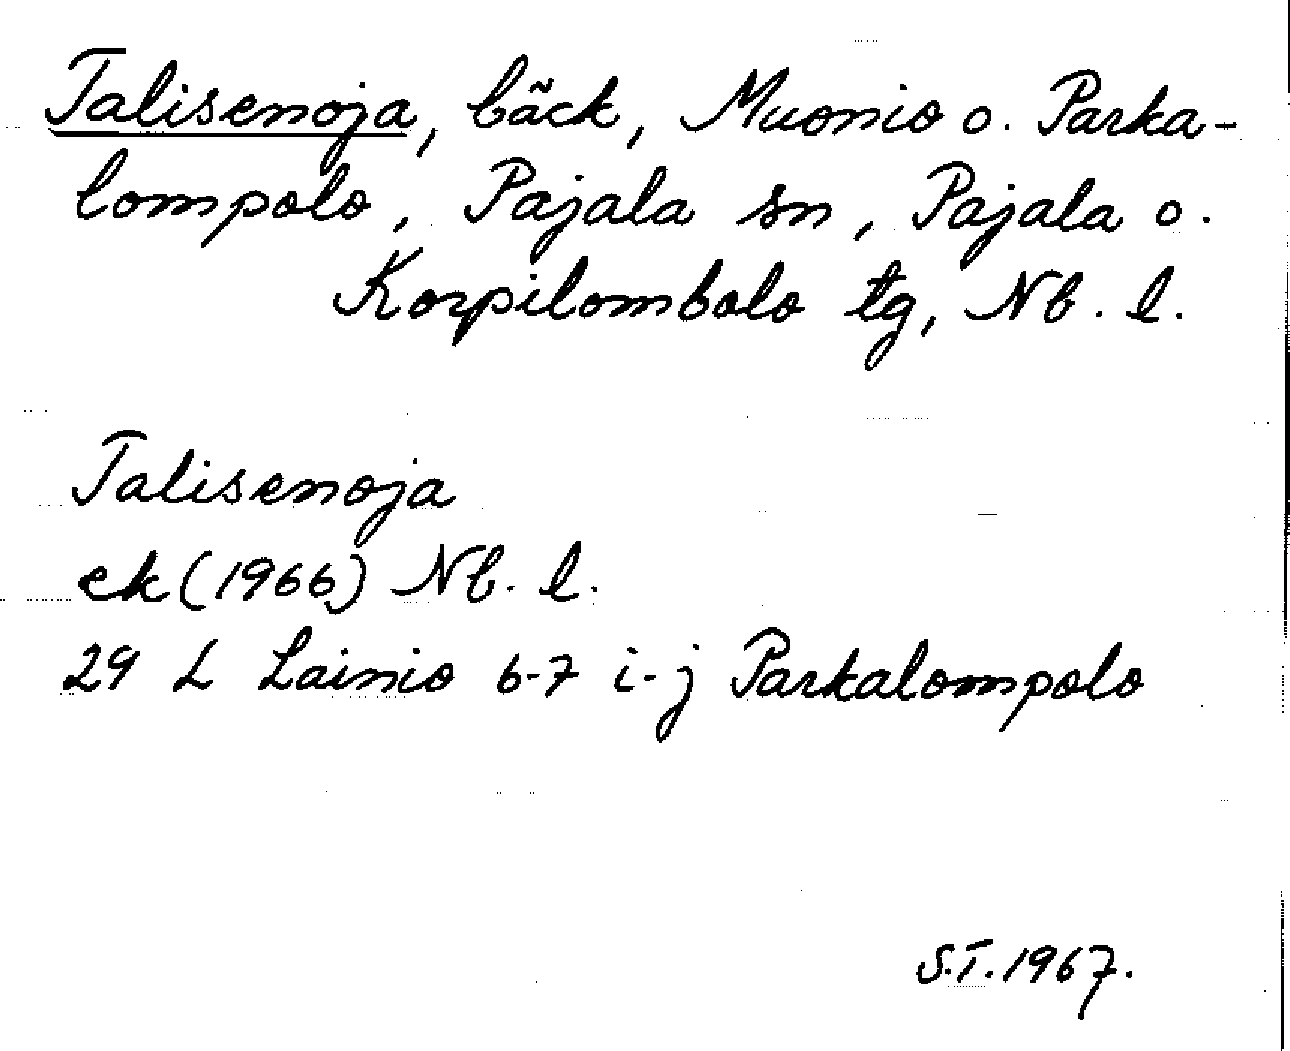 Talisenoja, bäck, Muonio o. Parka-
lompolo, Pajala sn, Pajala o.
Korpilombolo tg, Nb. l.
Talisenoja
ek (1966) Nb. l.
29 L Lainio 6-7 i-j Parkalompolo
S.T. 1967.